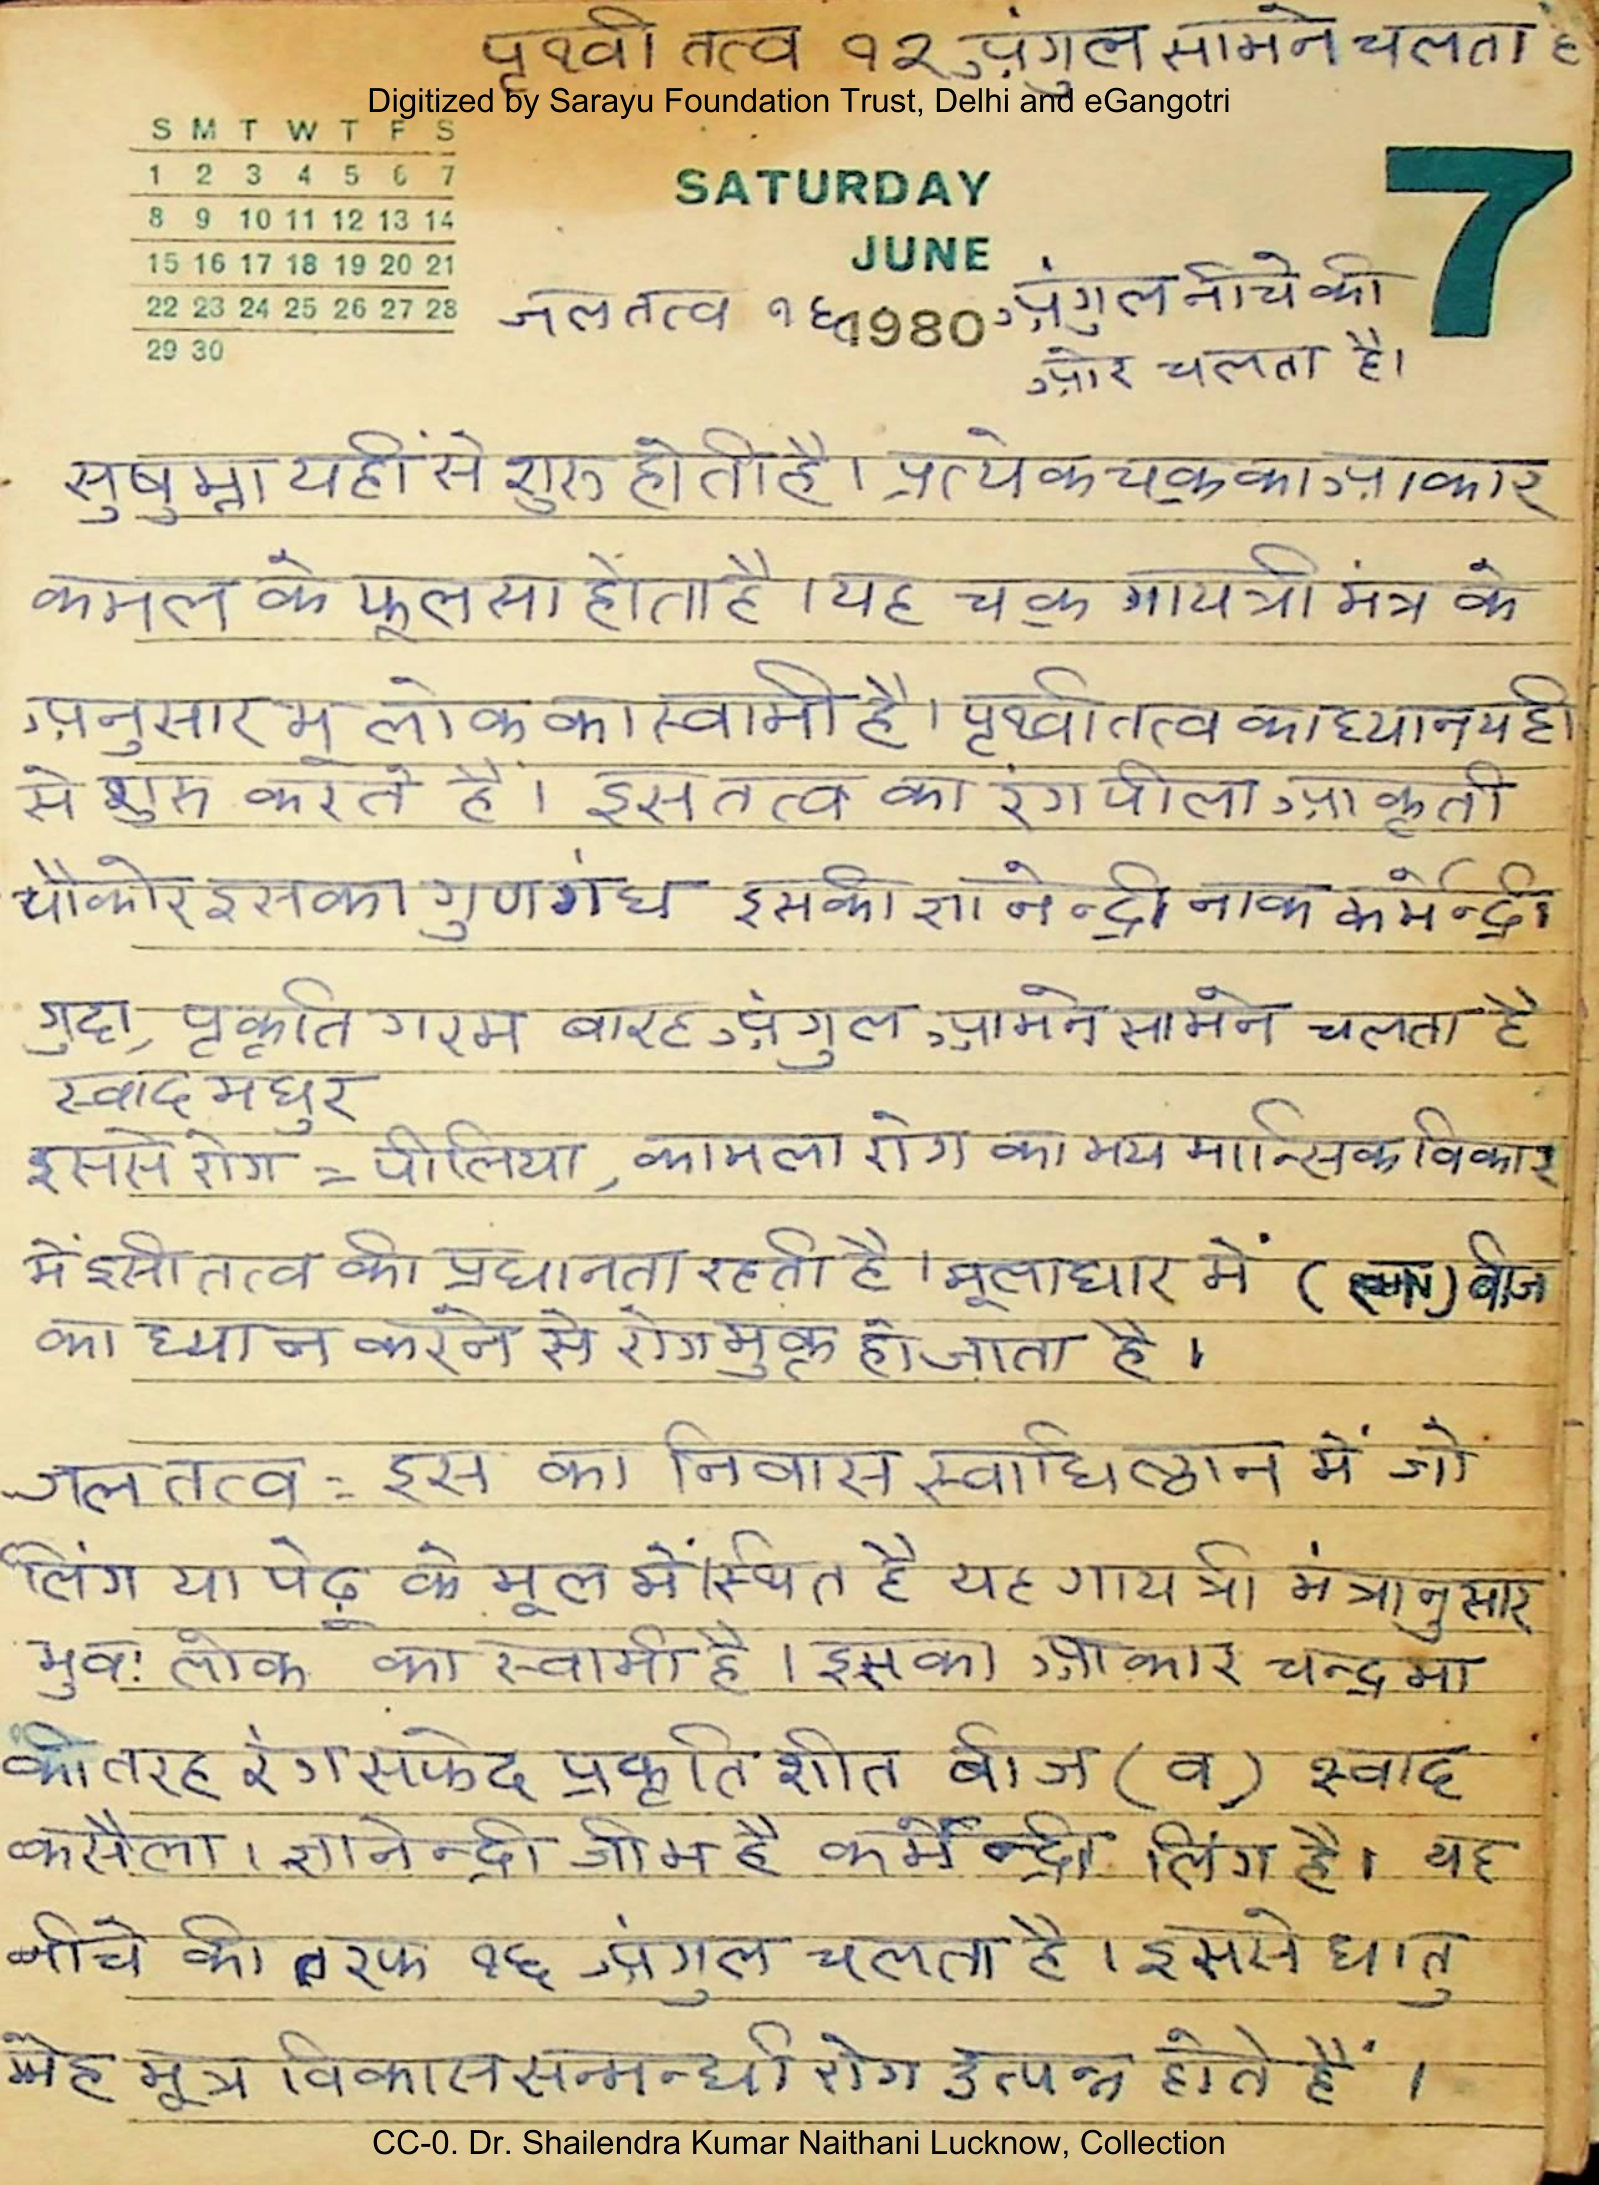 पृथ्वी तत्व १२ अंगुल सामने चलता है
Digitized by Sarayu Foundation Trust, Delhi and eGangotri
S M T W T F S
1 2 3 4 5 6 7
8 9 10 11 12 13 14
15 16 17 18 19 20 21
22 23 24 25 26 27 28
29 30
SATURDAY
JUNE
7
जल तत्व १६ 1980 अंगुल नीचे की
ओर चलता है।
सुषुम्ना यहीं से शुरु होती है। प्रत्येक चक्र का आकार
कमल के फूल सा होता है। यह चक्र गायत्री मंत्र के
अनुसार भू लोक का स्वामी है। पृथ्वी तत्व का ध्यान यही
से शुरु करते हैं। इस तत्व का रंग पीला आकृती
चौकोर इसका गुण गंध इसकी ज्ञानेन्द्री नाक कर्मेन्द्री
गुदा, पृकृति गरम बारह अंगुल आमने सामने चलता है
स्वाद मधुर
इससे रोग = पीलिया, कामला रोग का भय मान्सिक विकार
में इसी तत्व की प्रधानता रहती है। मूलाधार में ( ) बीज
का ध्यान करने से रोग मुक्त हो जाता है।
जल तत्व = इस का निवास स्वाधिष्ठान में जो
लिंग या पेढ़ू के मूल में स्थित है यह गायत्री मंत्रानुसार
भुवः लोक का स्वामी है। इसका आकार चन्द्रमा
की तरह रंग सफेद प्रकृति शीत बीज (व) स्वाद
कसैला। ज्ञानेन्द्री जीभ है कर्मेन्द्री लिंग है। यह
नीचे की तरफ १६ अंगुल चलता है। इससे धातु
मेह मूत्र विकास सन्मन्धी रोग उत्पन्न होते हैं।
CC-0. Dr. Shailendra Kumar Naithani Lucknow, Collection